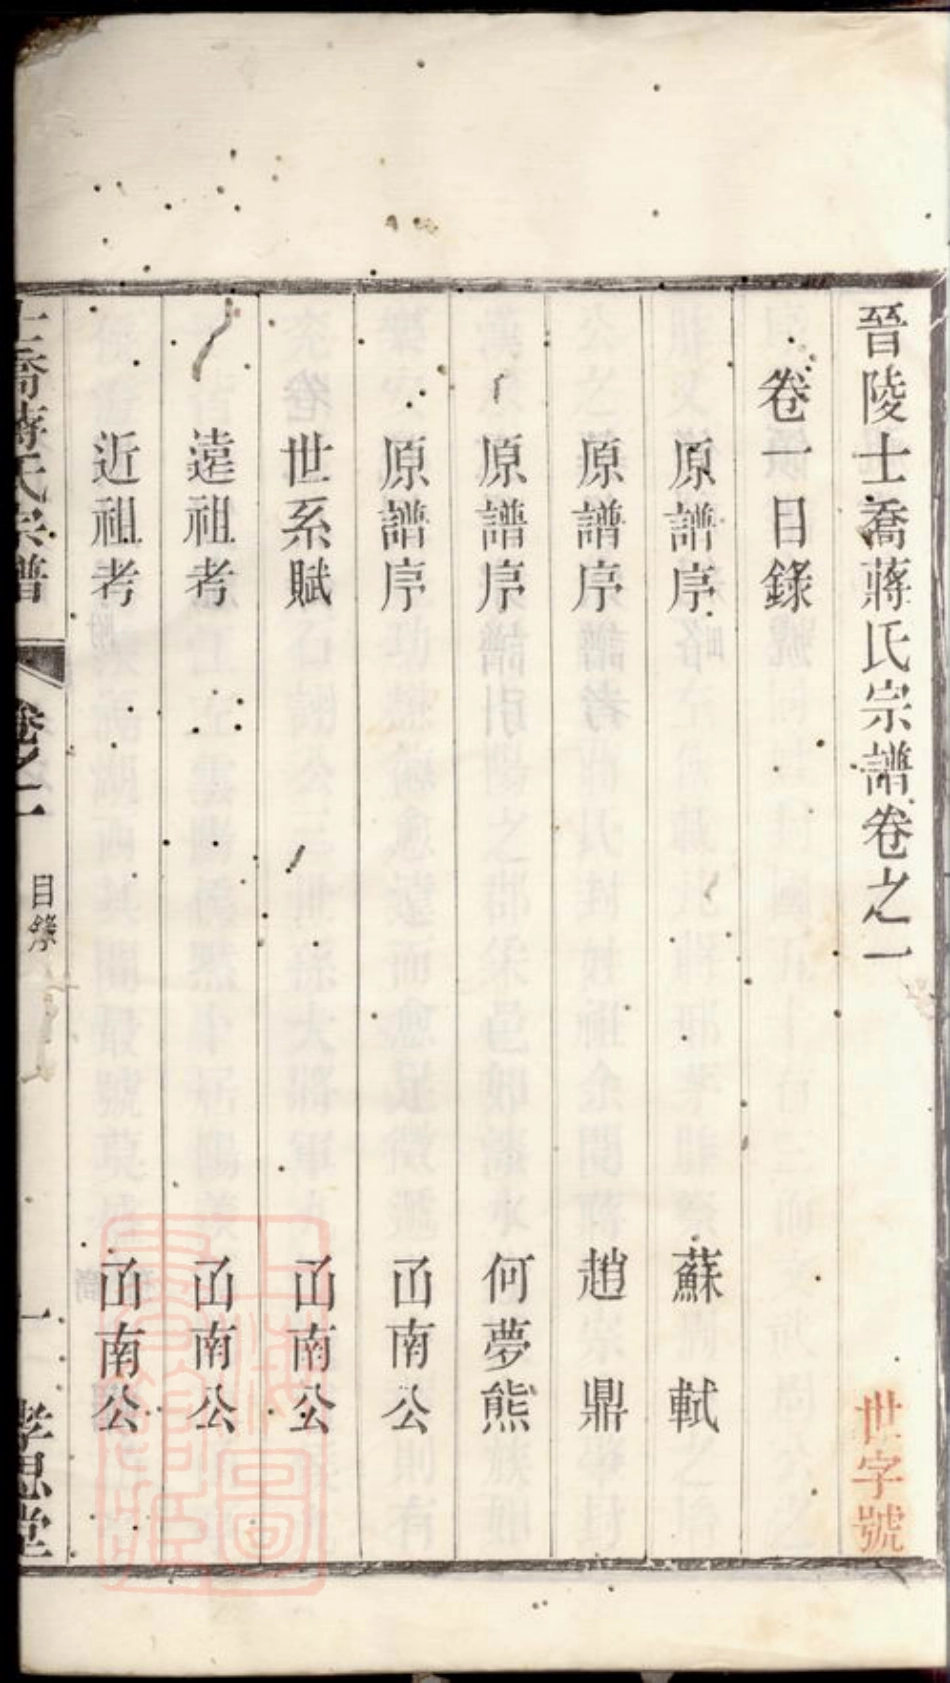 晉陵士喬蔣氏宗譜卷之一
世字號
卷一目錄
原譜序 蘇軾
原譜序 趙鼎
原譜序 何夢熊
原譜序 凾南公
世系賦 凾南公
遠祖考 凾南公
近祖考 凾南公
士喬蔣氏宗譜 卷之一 目錄 一 孝思堂